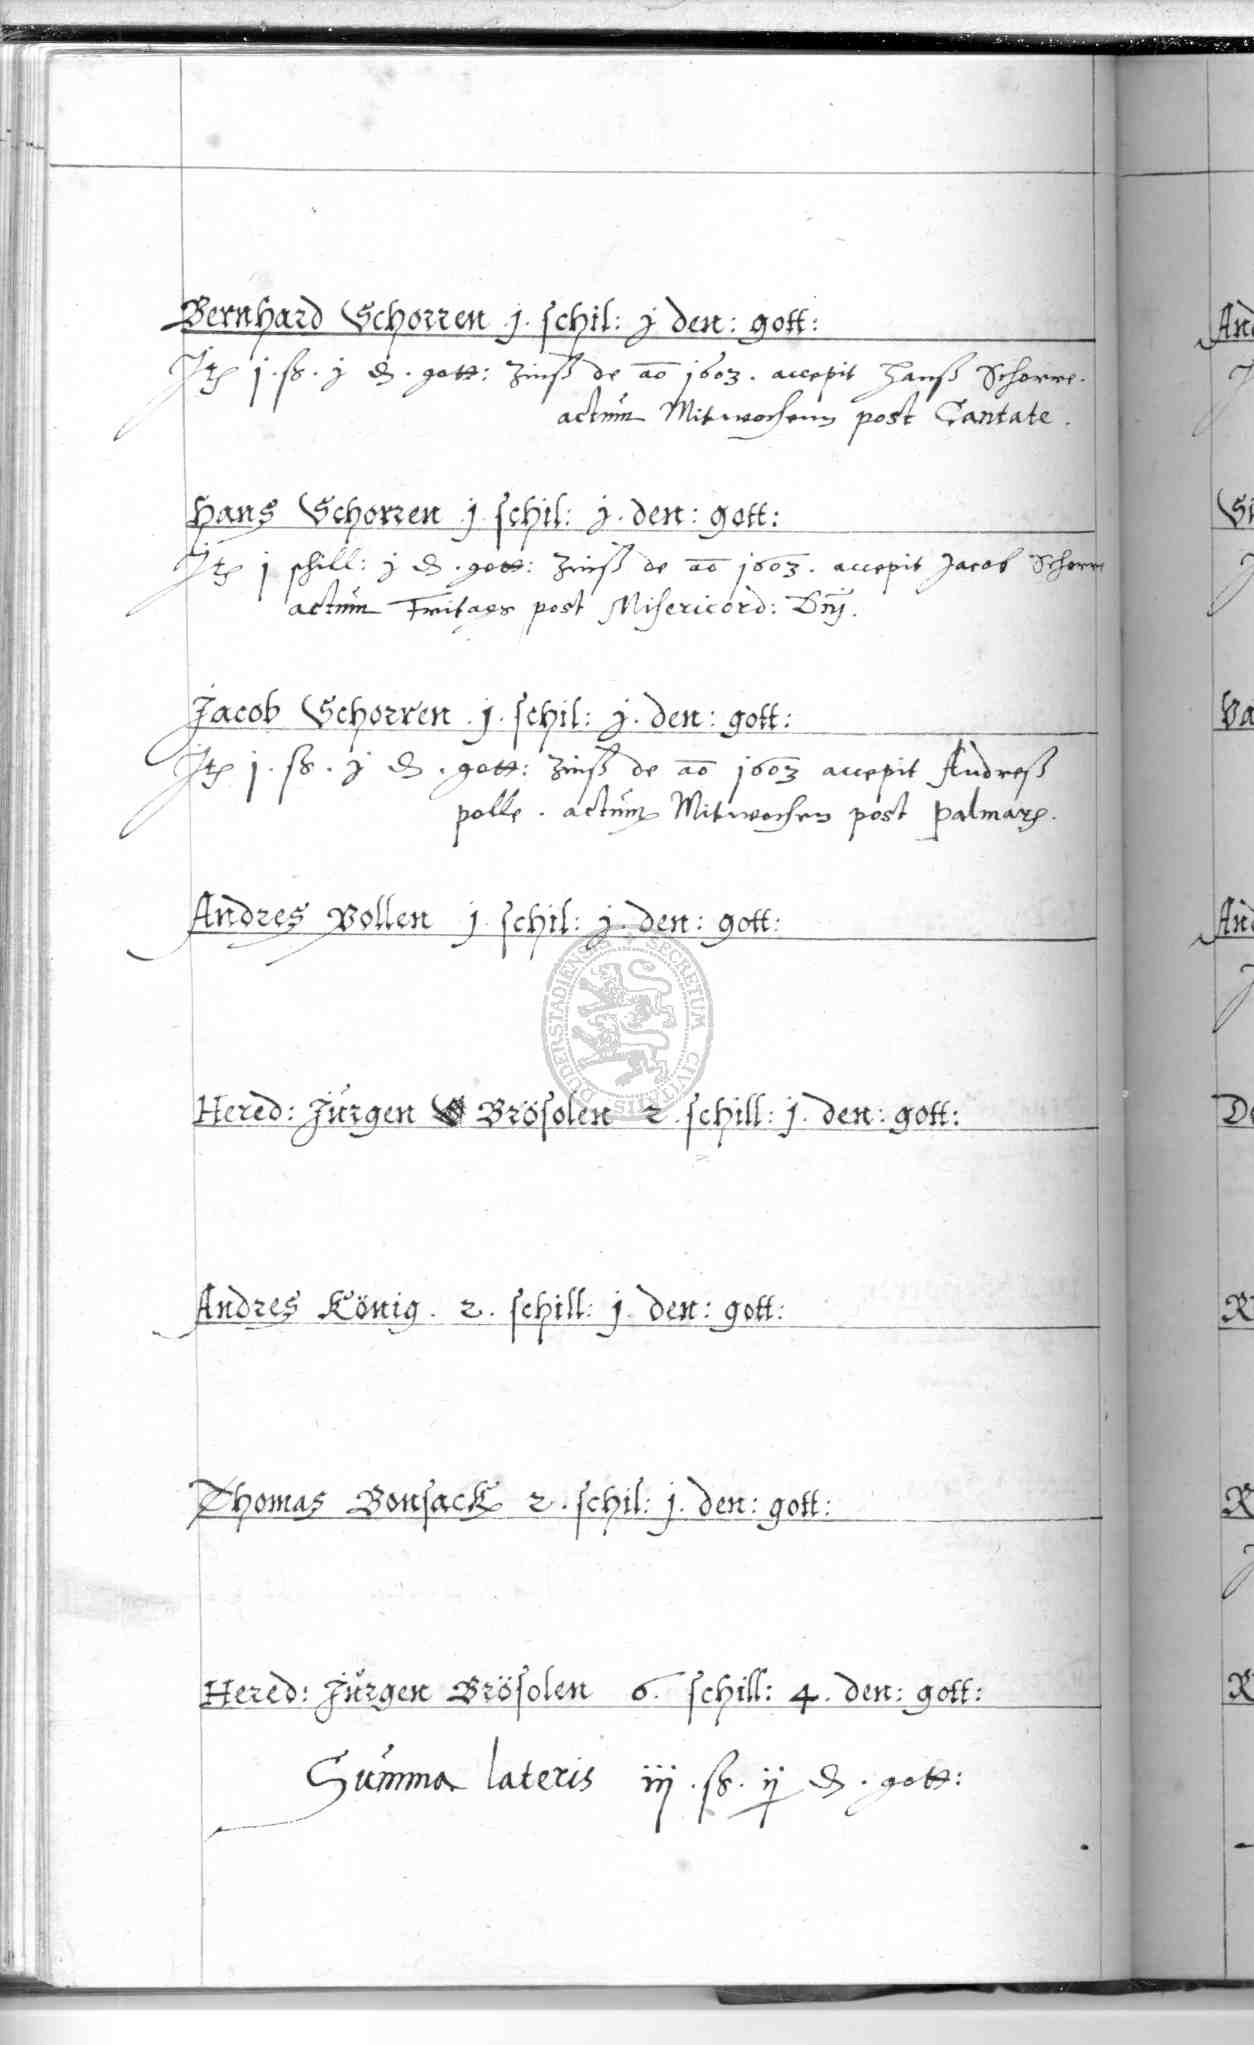 Bernhard Schorren j. schil: j den: gott:
Jtz j. ß. j d. gott: Zinß de ao 1603. accepit Hanß Schorre.
actum Mitwochenn post Cantate.
Hans Schorren j. schil: j. den: gott:
Jtz j schill: j d. gott: Zinß de ao 1603. accepit Jacob Schorre
actum Fritags post Misericord: Dnj.
Jacob Schorren. j. schil: j. den: gott:
Jtz j. ß. j d. gott: Zinß de ao 1603 accepit Andreß
polle. actum Mitwochen post palmarz.
Andres Pollen j. schil: j. den: gott:
Hered: Jürgen Brösolen 2. schill: j. den: gott:
Andres König. 2. schill: j. den: gott:
Thomas Bonsack 2. schil: j. den: gott:
Hered: Jürgen Brösolen 6. schill: 4. den: gott:
Summa lateris iij. ß. ij d. gott:
SECRETUM CIVITATIS DUDERSTADIENSIS
And
Si
Va
And
De
R
R
R